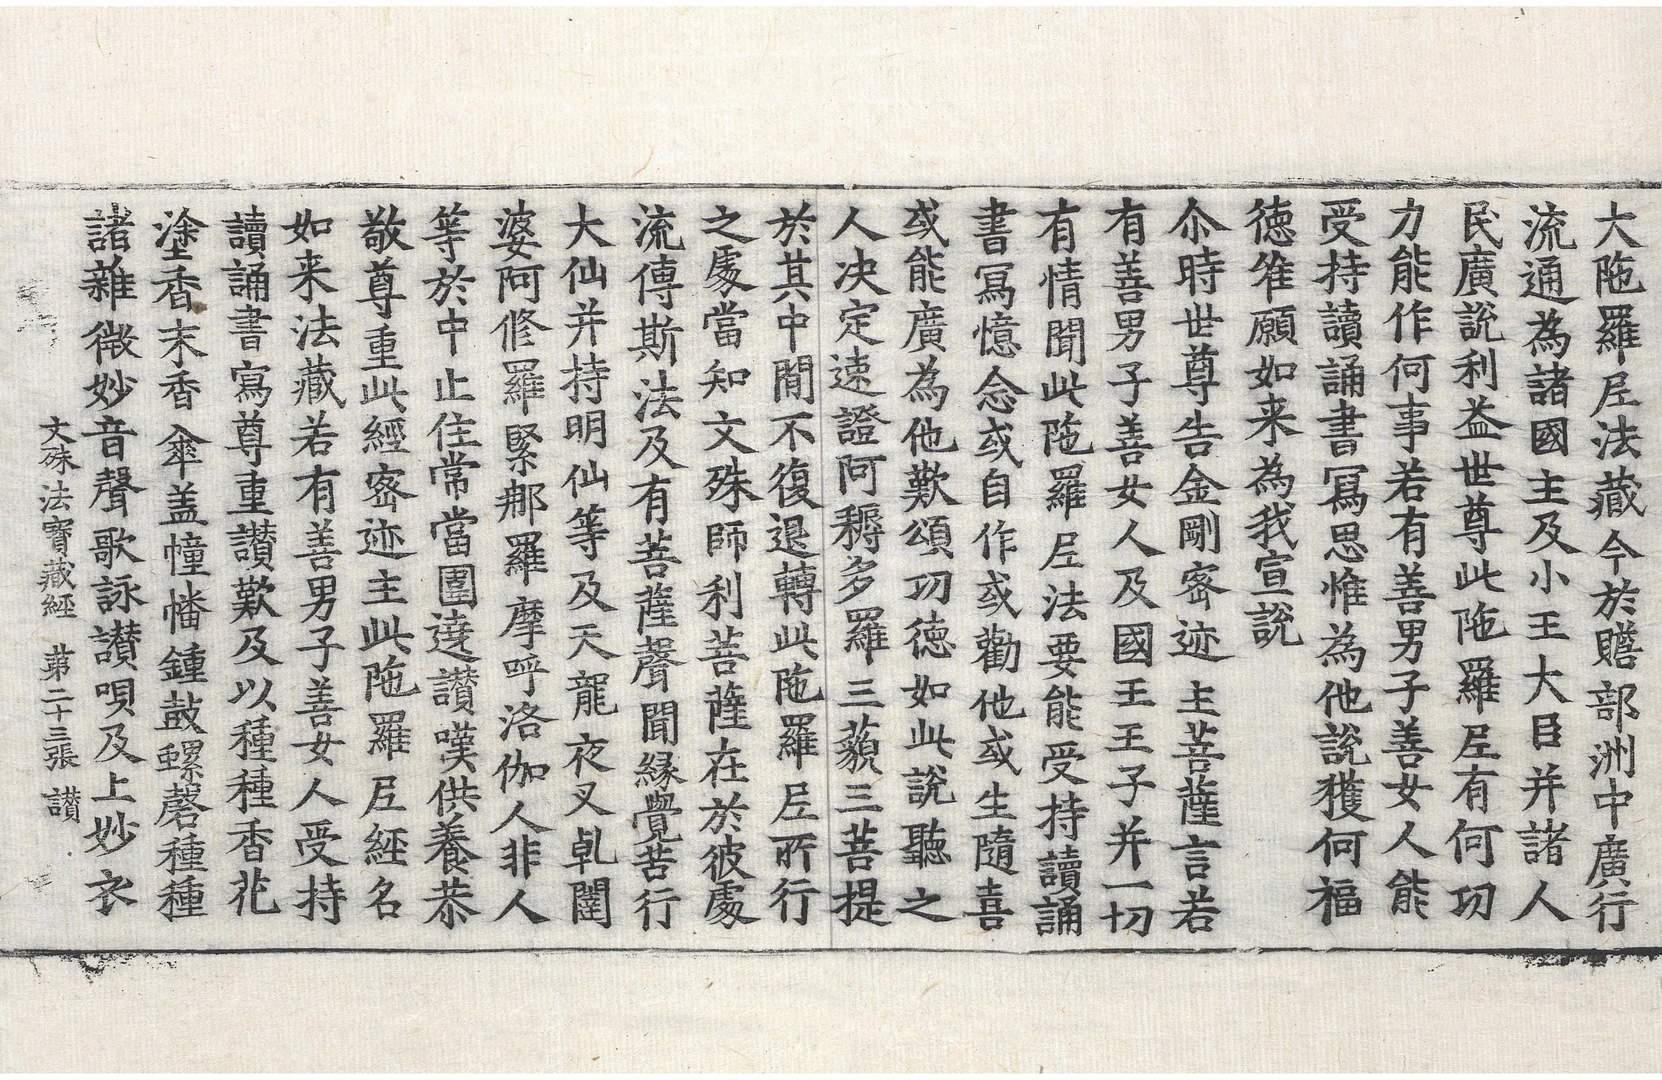 大陁羅𡰱法藏今於贍部洲中廣行
流通為諸國主及小王大臣并諸人
民廣說利益世尊此陁羅𡰱有何㓛
力能作何事若有善男子善女人能
受持讀誦書冩思惟為他說獲何福
德唯願如来為我宣說
尒時世尊告金剛宻迹主菩薩言若
有善男子善女人及國王王子并一切
有情聞此陁羅𡰱法要能受持讀誦
書冩憶念或自作或勸他或生隨喜
或能廣為他歎頌㓛徳如此說聽之
人决定速證阿耨多羅三藐三菩提
於其中間不復退轉此陁羅𡰱所行
之處當知文殊師利菩薩在於彼處
流傳斯法及有菩薩聲聞緣覺苦行
大仙并持明仙等及天龍夜叉乹闥
婆阿修羅緊那羅摩呼洛伽人非人
等於中止住常當圍遶讃嘆供養恭
敬尊重此經宻迹主此陁羅𡰱經名
如来法藏若有善男子善女人受持
讀誦書寫尊重讃歎及以種種香花
塗香末香傘盖幢幡鍾鼓螺磬種種
諸雜微妙音聲歌詠讃唄及上妙衣
文殊法寳藏經　苐二十三張　讃